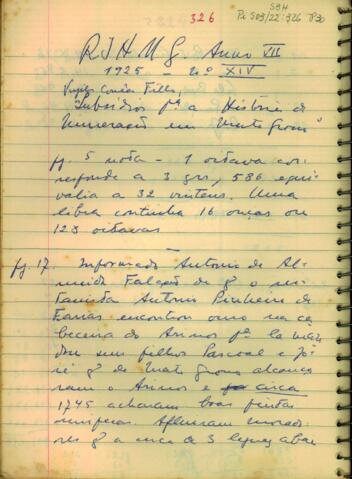 326
SBH
Pi 503/22:326 P30
R I H M G. Anno VII
1925 - Nº XIV
Virgilio Corrêa Filho,
"Subsidios pª a História da
Mineração em Mato Grosso"
pg. 5 nota - 1 oitava cor-
responde a 3 grs, 586 equi-
valia a 32 vintens. Uma
libra continha 16 onças ou
128 oitavas
pg. 17. Informado Antonio de Al-
meida Falcão de q o ser-
tanista Antonio Pinheiro de
Farias encontrou ouro na ca-
beceira do Arinos pª la
seus filhos Pascoal e Jo-
sé q de Mato Grosso alcança-
ram o Arinos e circa
1745 acharam boas pintas
auriferas. Afluiram morado-
res q a cerca de 3 leguas abai